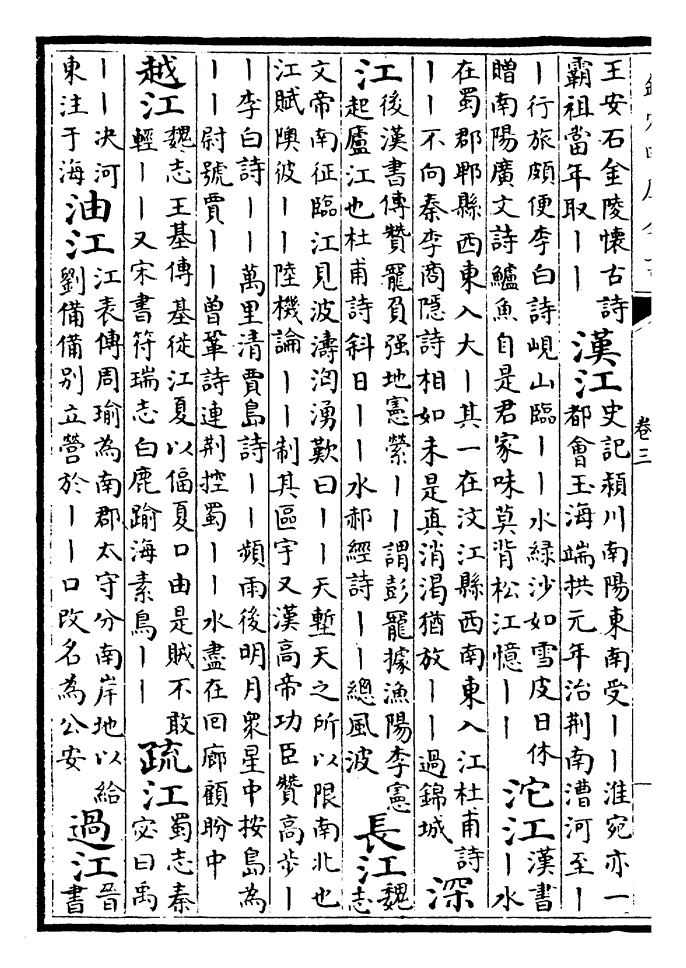 卷三
王安石金陵懷古詩
霸祖當年取丨丨
漢江
史記潁川南陽東南受丨丨淮宛亦一
都會玉海端拱元年治荆南漕河至丨
丨行旅頗便李白詩峴山臨丨丨水緑沙如雪皮日休
贈南陽廣文詩鱸魚自是君家味莫背松江憶丨丨
沱江
漢書
丨水
在蜀郡郫縣西東入大丨其一在汶江縣西南東入江杜甫詩
丨丨不向秦李商隱詩相如未是真消渴猶放丨丨過錦城
深
江
後漢書傳贊寵負强地憲縈丨丨謂彭寵據漁陽李憲
起廬江也杜甫詩斜日丨丨水郝經詩丨丨總風波
長江
魏
志
文帝南征臨江見波濤洶湧歎曰丨丨天塹天之所以限南北也
江賦隩彼丨丨陸機論丨丨制其區宇又漢高帝功臣贊高歩丨
丨李白詩丨丨萬里清賈島詩丨丨頻雨後明月衆星中按島為
丨丨尉號賈丨丨曾鞏詩連荆控蜀丨丨水盡在回廊顧盼中
越江
魏志王基傳基徙江夏以偪夏口由是賊不敢
輕丨丨又宋書符瑞志白鹿踰海素鳥丨丨
疏江
蜀志秦
宓曰禹
丨丨决河
東注于海
油江
江表傳周瑜為南郡太守分南岸地以給
劉備備别立營於丨丨口改名為公安
過江
晉
書